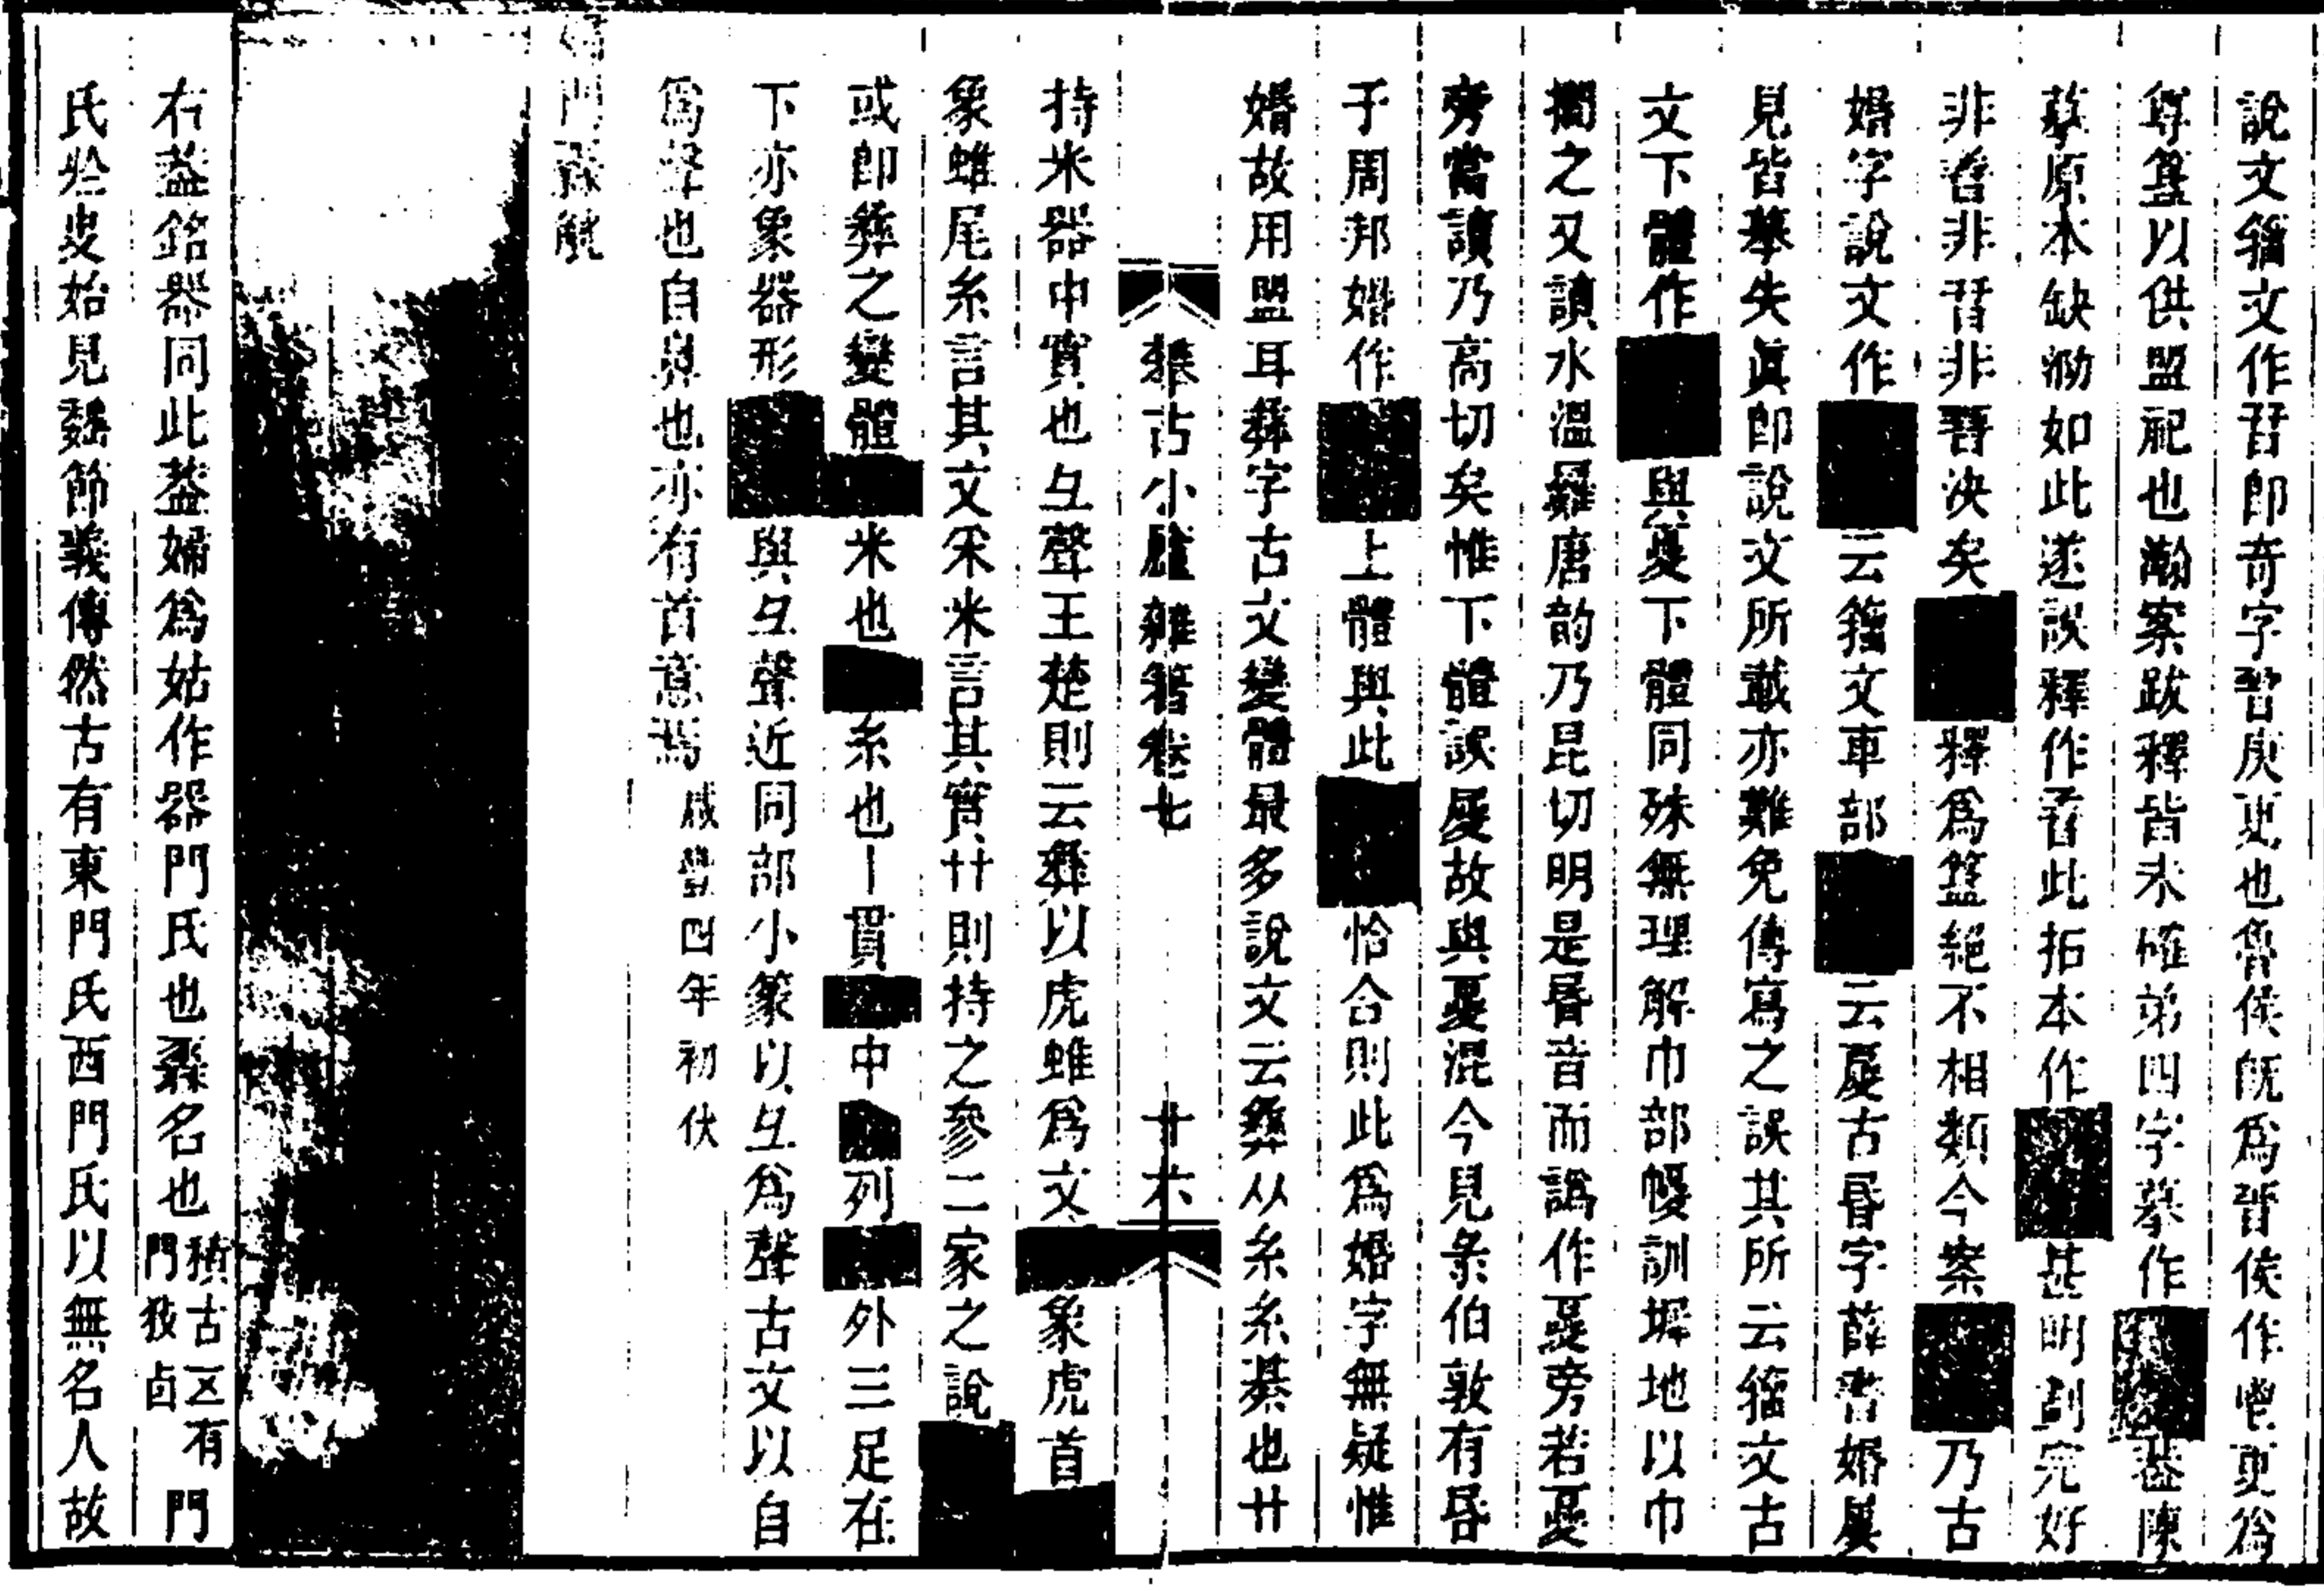 說文籀文作㬜即奇字晉庚更也魯侯既為晉侯作鬯更為
尊簋以供盟祀也瀚案跋釋皆未確弟四字摹作蓋陳
摹原本缺泐如此遂誤釋作此拓本作甚明劃完好
非非非決矣釋為簋絕不相類今案乃古
婚字說文作云籀文車部云古昬字薛書婚
見皆摹失真即說文所載亦難免傳寫之誤其所云籀文古
文下體作與下體同殊無理解巾部幔訓墀地以巾
撋之又讀水溫䵮唐韵乃昆切明是昬音而譌作旁若
旁當讀乃高切矣惟下體誤故與混今見彔伯敦有昏
于周邦婚作上體與此恰合則此為婚字無疑惟
婚故用盟耳彝字古文變體最多說文云彝从糸糸綦也廾
攀古小廬雜箸卷七 廿六
持米器中實也彑聲王楚則云彝以虎蜼為文象虎首
象蜼尾糸言其文采米言其實廾則持之參二家之說
或即彝之變體米也糸也丨貫中列外三足在
下亦象器形與彑聲近同部小篆以彑為聲古文以自
為聲也自鼻也亦有首意焉 咸豐四年初伏
門觥
右蓋銘器同此蓋婦為姑作器門氏也名也 積古有門 門卣
氏於叟始見節義傳然古有東門氏西門氏以無名人故